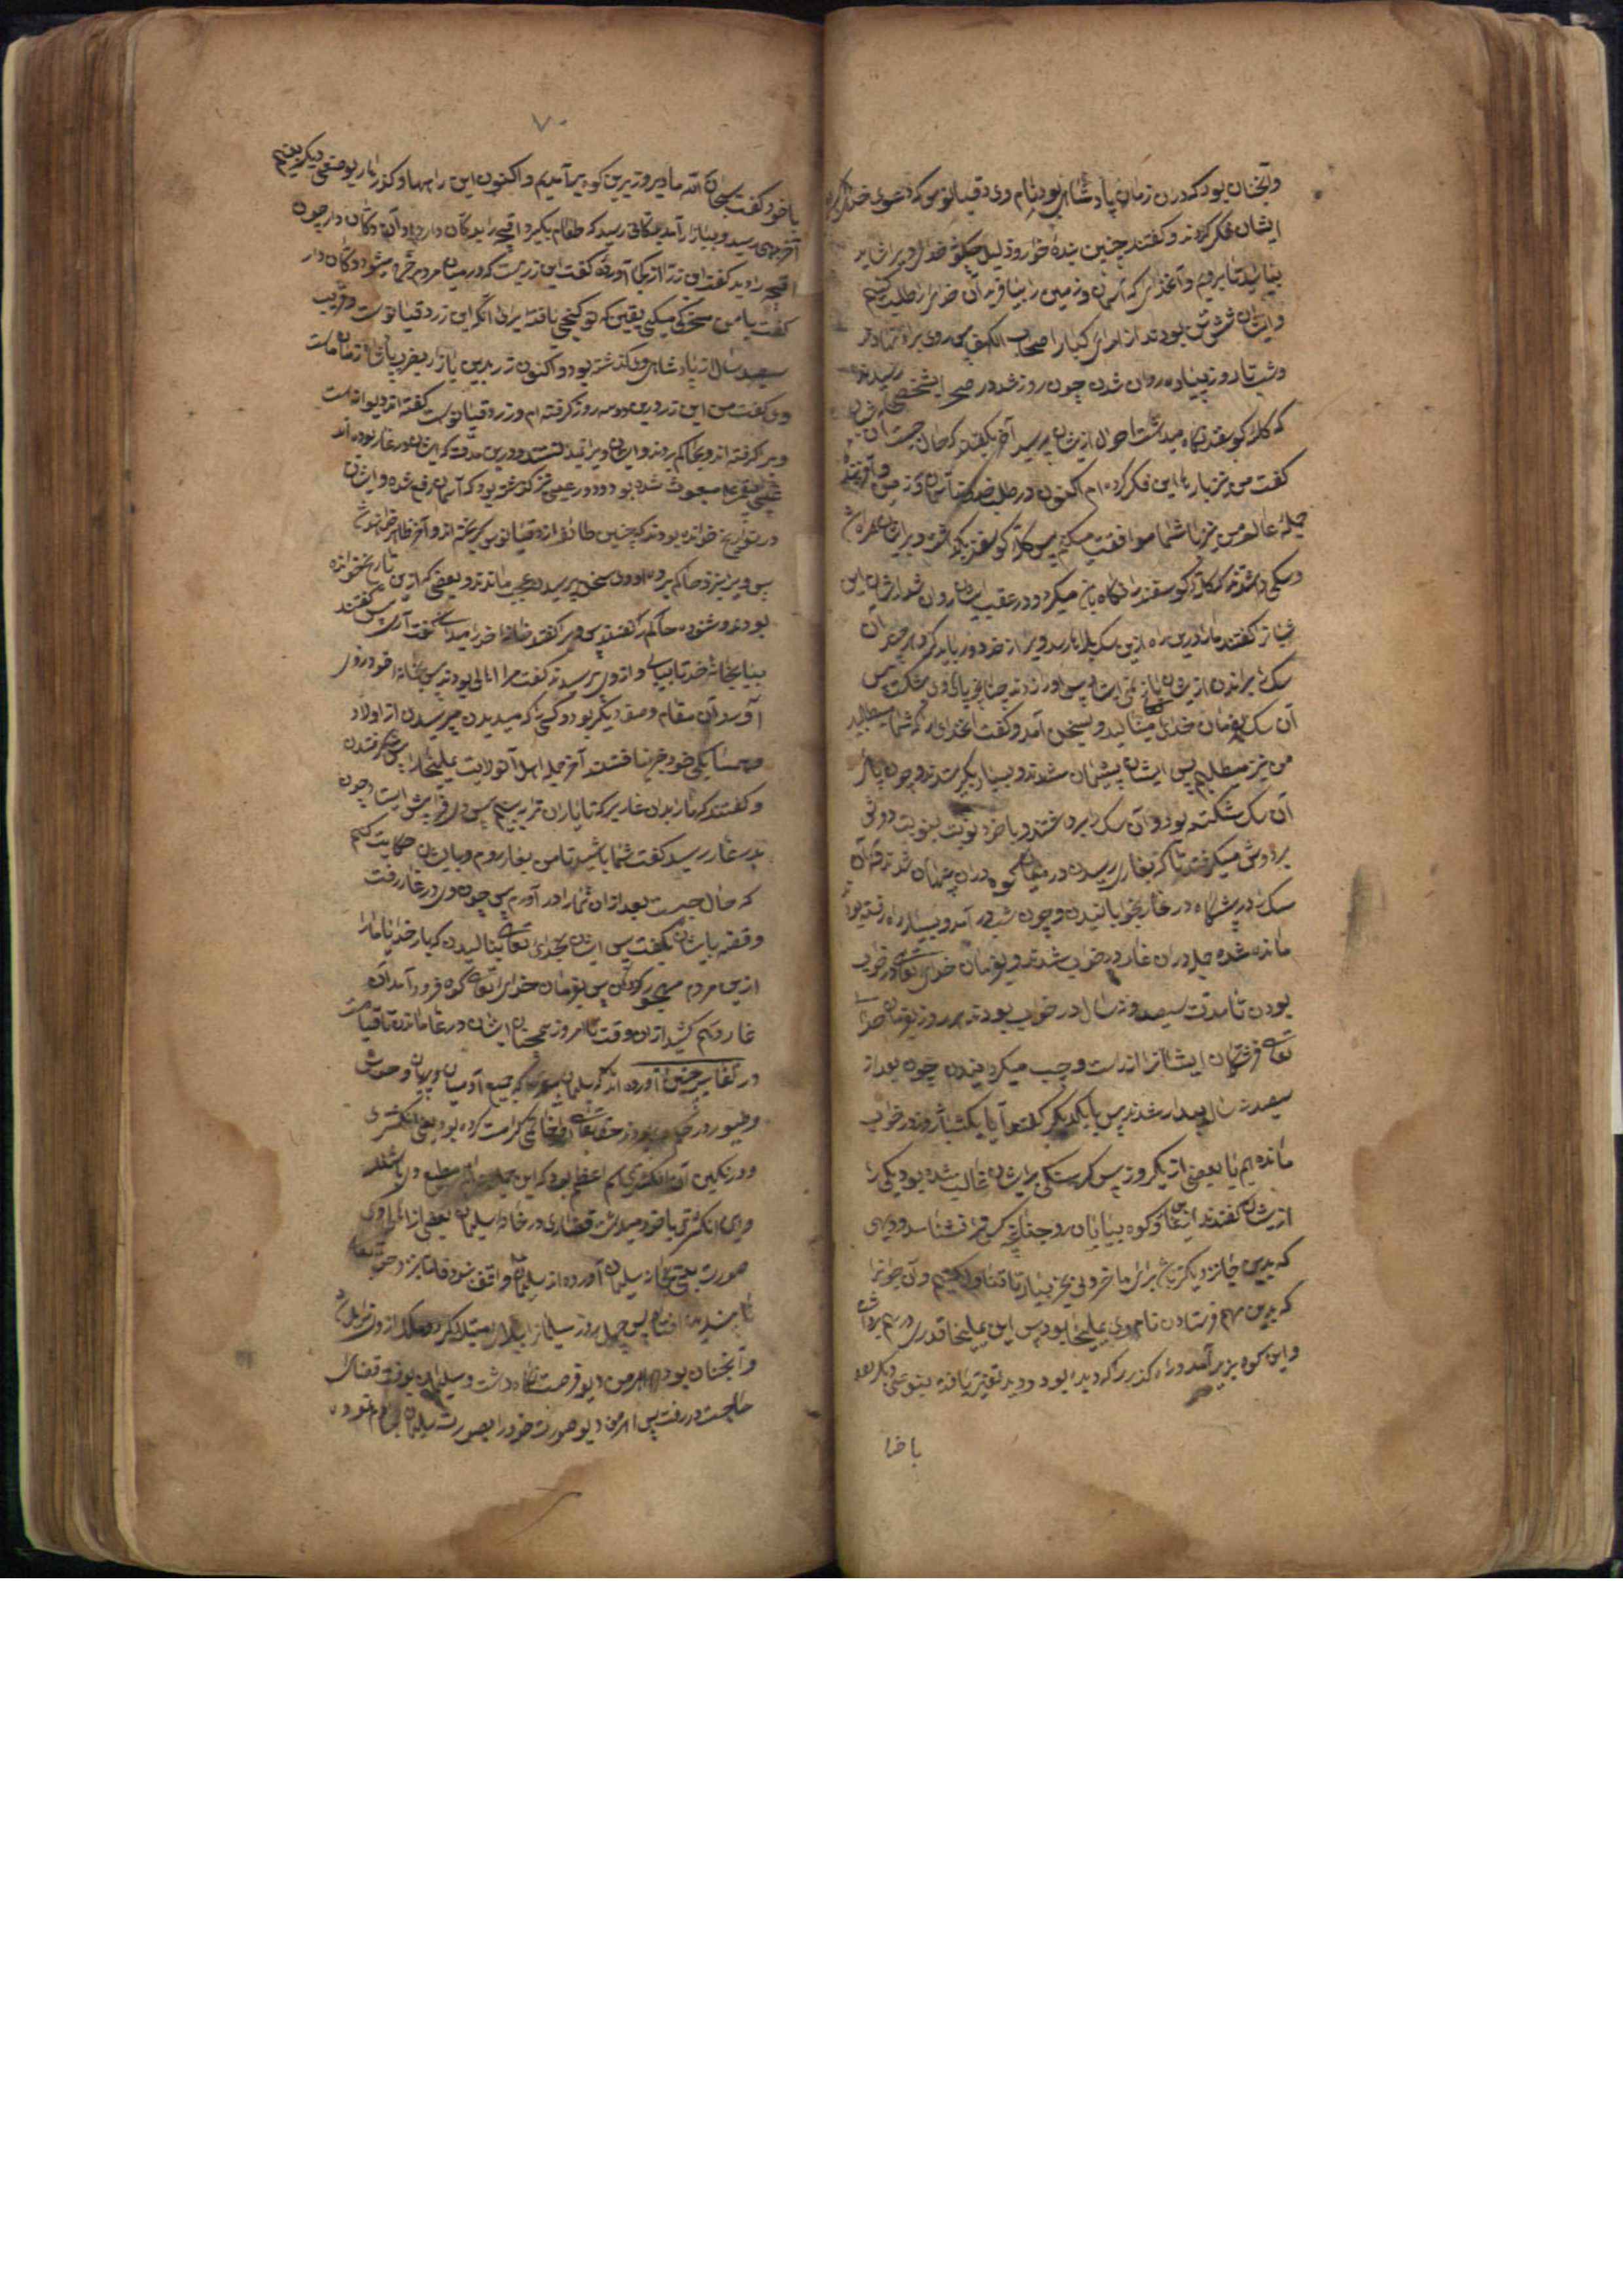 وآنچنان بود که در آن زمان پادشاهی بود نام وی دقیانوس که دعوی خدایی
ایشان فکر کردند و گفتند چنین بندهٔ خوار و ذلیل چگونه خدایی را شاید
بیایید تا برویم و آنخدایی که آسمان و زمین را بیافریده آن خدایرا طلب کنیم
و ایشان شش تن بودند از امرای کبار اصحاب الکهف پس روی براه نهادند
و شب تا روز پیاده روان شدند چون روز شد در صحرا بشخصی رسیدند
که گله گوسفند نگاه میداشت احوال ازیشان پرسید آخر بگفتند که حال چیست آن
گفت من نیز بارها این فکر کرده ام اکنون در طلب
جملهٔ عالم من نیز با شما موافقت میکنم پس گله گوسفند بگذاشت و با ایشان همراه شد
و سگی داشتند که گله گوسفند را نگاه بانی میکرد و در عقب ایشان روان شد ایشان این
شبانرا گفتند ما را درین راه ازین سگ بلا نارسد ویرا از خود دور باید کرد هرچند آن
سگ را براندند ازیشان باز نمی ایستاد پس اورا زدند چنانچه پای وی شکست پس
آن سگ بفرمان خدای بنالید و بسخن آمد و گفت آنخدایی را که شما میطلبید
من نیز میطلبم پس ایشان پشیمان شدند و بسیار بگریستند و چون پای
آن سگ شکسته بود و آن سگ را برداشتند و با خود نوبت بنوبت دوش
بر دوش میگرفتند تا که بغاری رسیدند در میان کوه در آن پنهان شدند و آن
سگ را در پیشگاه در غار بخوابانیدند و چون شب در آمد و بسیار راه رفته بودند
مانده شده جمله در آن غار در خواب شدند و بفرمان خدای تعالی در خواب
بودند تا مدت سیصد و نه سال در خواب بودند هر روز بفرمان خدای
تعالی فرشتگان ایشانرا از راست و چپ میگردانیدند چون بعد از
سیصد و نه سال بیدار شدند پس با یکدیگر گفتند آیا یک شبانروز در خواب
مانده ایم یا بعضی از یکروز پس گرسنگی بر ایشان غالب شده بود یکی را
ازیشان گفتند اینجا کوه بیابان و جنگل کس ترا نشناسد و دیهی
که بدین جا نزدیکتر باشد برای ما خوردنی بخر بیار تا تناول کنیم و آن جوانرا
که بدین مهم فرستادند نام وی یملیخا بود پس این یملیخا قدری درم برداشت
و ازین کوه بزیر آمد و راه گذر را که دیده بود و دید تغیر یافته بنوعی دیگر شد
با خو
۷۰
با خود گفت سبحان الله ما دیروز برین کوه بر آمدیم و اکنون این راهها و گذرها را بوضعی دیگر بینم
آخر بدیهی رسید و ببازار آمد بدکانی رسید که طعام بگیرد اقچه را بدکان دار داد و آن دکان دار چون
اقچه را دید گفت این زر از کجا آوردهٔ گفت این زریست که در میان مردم خرج میشود دکان دار
گفت با من سخرگی میکنی یقین که تو گنجی یافتهٔ برای آنکه این زر دقیانوس است و قریب
سیصد سال از پادشاهی وی گذشته بود و اکنون زر بدین بازار
وی گفت من این زر درین دو سه روز گرفته ام و زر دقیانوس است گفتند این دیوانه است
ویرا گرفتند و بحاکم بردند و درین مدت که ایشان در غار بوده اند
عیسی پیغمبر مبعوث شده بود و دور عیسی نیز گذشته بود که بآسمان رفع شده و ایشان
در تواریخ خوانده بودند که چنین طائفه از دقیانوس گریخته اند و آخر ظاهر خواهند شد
پس ویرا نزد حاکم بردند و ازو سخن پرسید و در عجب ماندند و بعضی که ازین تاریخ خوانده
بودند و شنوده حاکم را گفتند پس ویرا گفتند خانهٔ خود را میدانی گفت آری پس گفتند
بیا بخانهٔ خود تا ببینیم و ازوی پرسیدند گفت مرا اهالی بودند پس بخانهٔ خود روی
آورد آن مقام و صفه دیگر بود و کسی را که میدیدند می پرسیدند از اولاد
و همسایگی خود خبر نیافتند آخر جمله اهل آن ولایت یملیخا را پیش گرفتند
و گفتند که ما را بدان غار بر که تا یاران ترا ببینیم پس وی در پیش ایستاد چون
بدر غار رسید گفت شما باشید تا من بغار روم و با ایشان حکایت کنم
که حال چیست بعد از آن شما را در آورم پس چون وی در غار رفت
و قصه با ایشان بگفت پس ایشان بخدای تعالی بنالیدند که بار خدایا ما را
ازین مردم مهجور گردان پس بفرمان خدای تعالی کوه فرود آمد آن
غار بهم کشید از آن وقت تا امروز همچنان ایشان در غار ماندند تا قیامت
در تفاسیر چنین آورده اند که سلیمان که جمیع آدمیان و پریان و وحوش
و طیور در حکم بودند حق تعالی ویرا خاتمی کرامت کرده بود یعنی انگشتری
و در نگین آن انگشتری اسم اعظم بود که این جمله مطیع
و این انگشتری با خود میداشت قضا را در خانهٔ سلیمان بعضی از
صورت بتی بخانه سلیمان آورده اند سلیمان واقف نبود
پس چهل روز سلیمانرا بدان مبتلا کرد
و آنچنان بود که اهرمن دیو فرصت نگاه داشت و سلیمان بوقت قضای
حاجت در رفت پس اهرمن دیو صورت خود را بصورت سلیمان